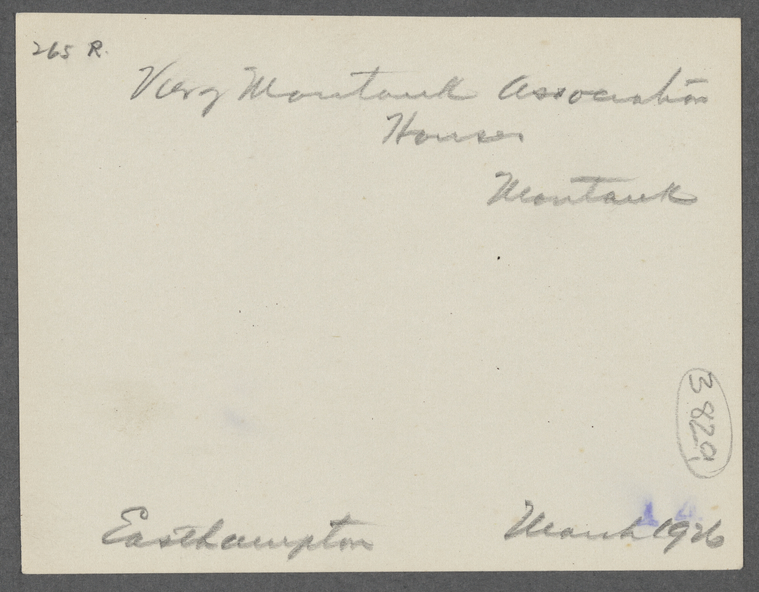 265 R.
View Montauk Association
Houses
Montauk
3829
Easthampton March 1926